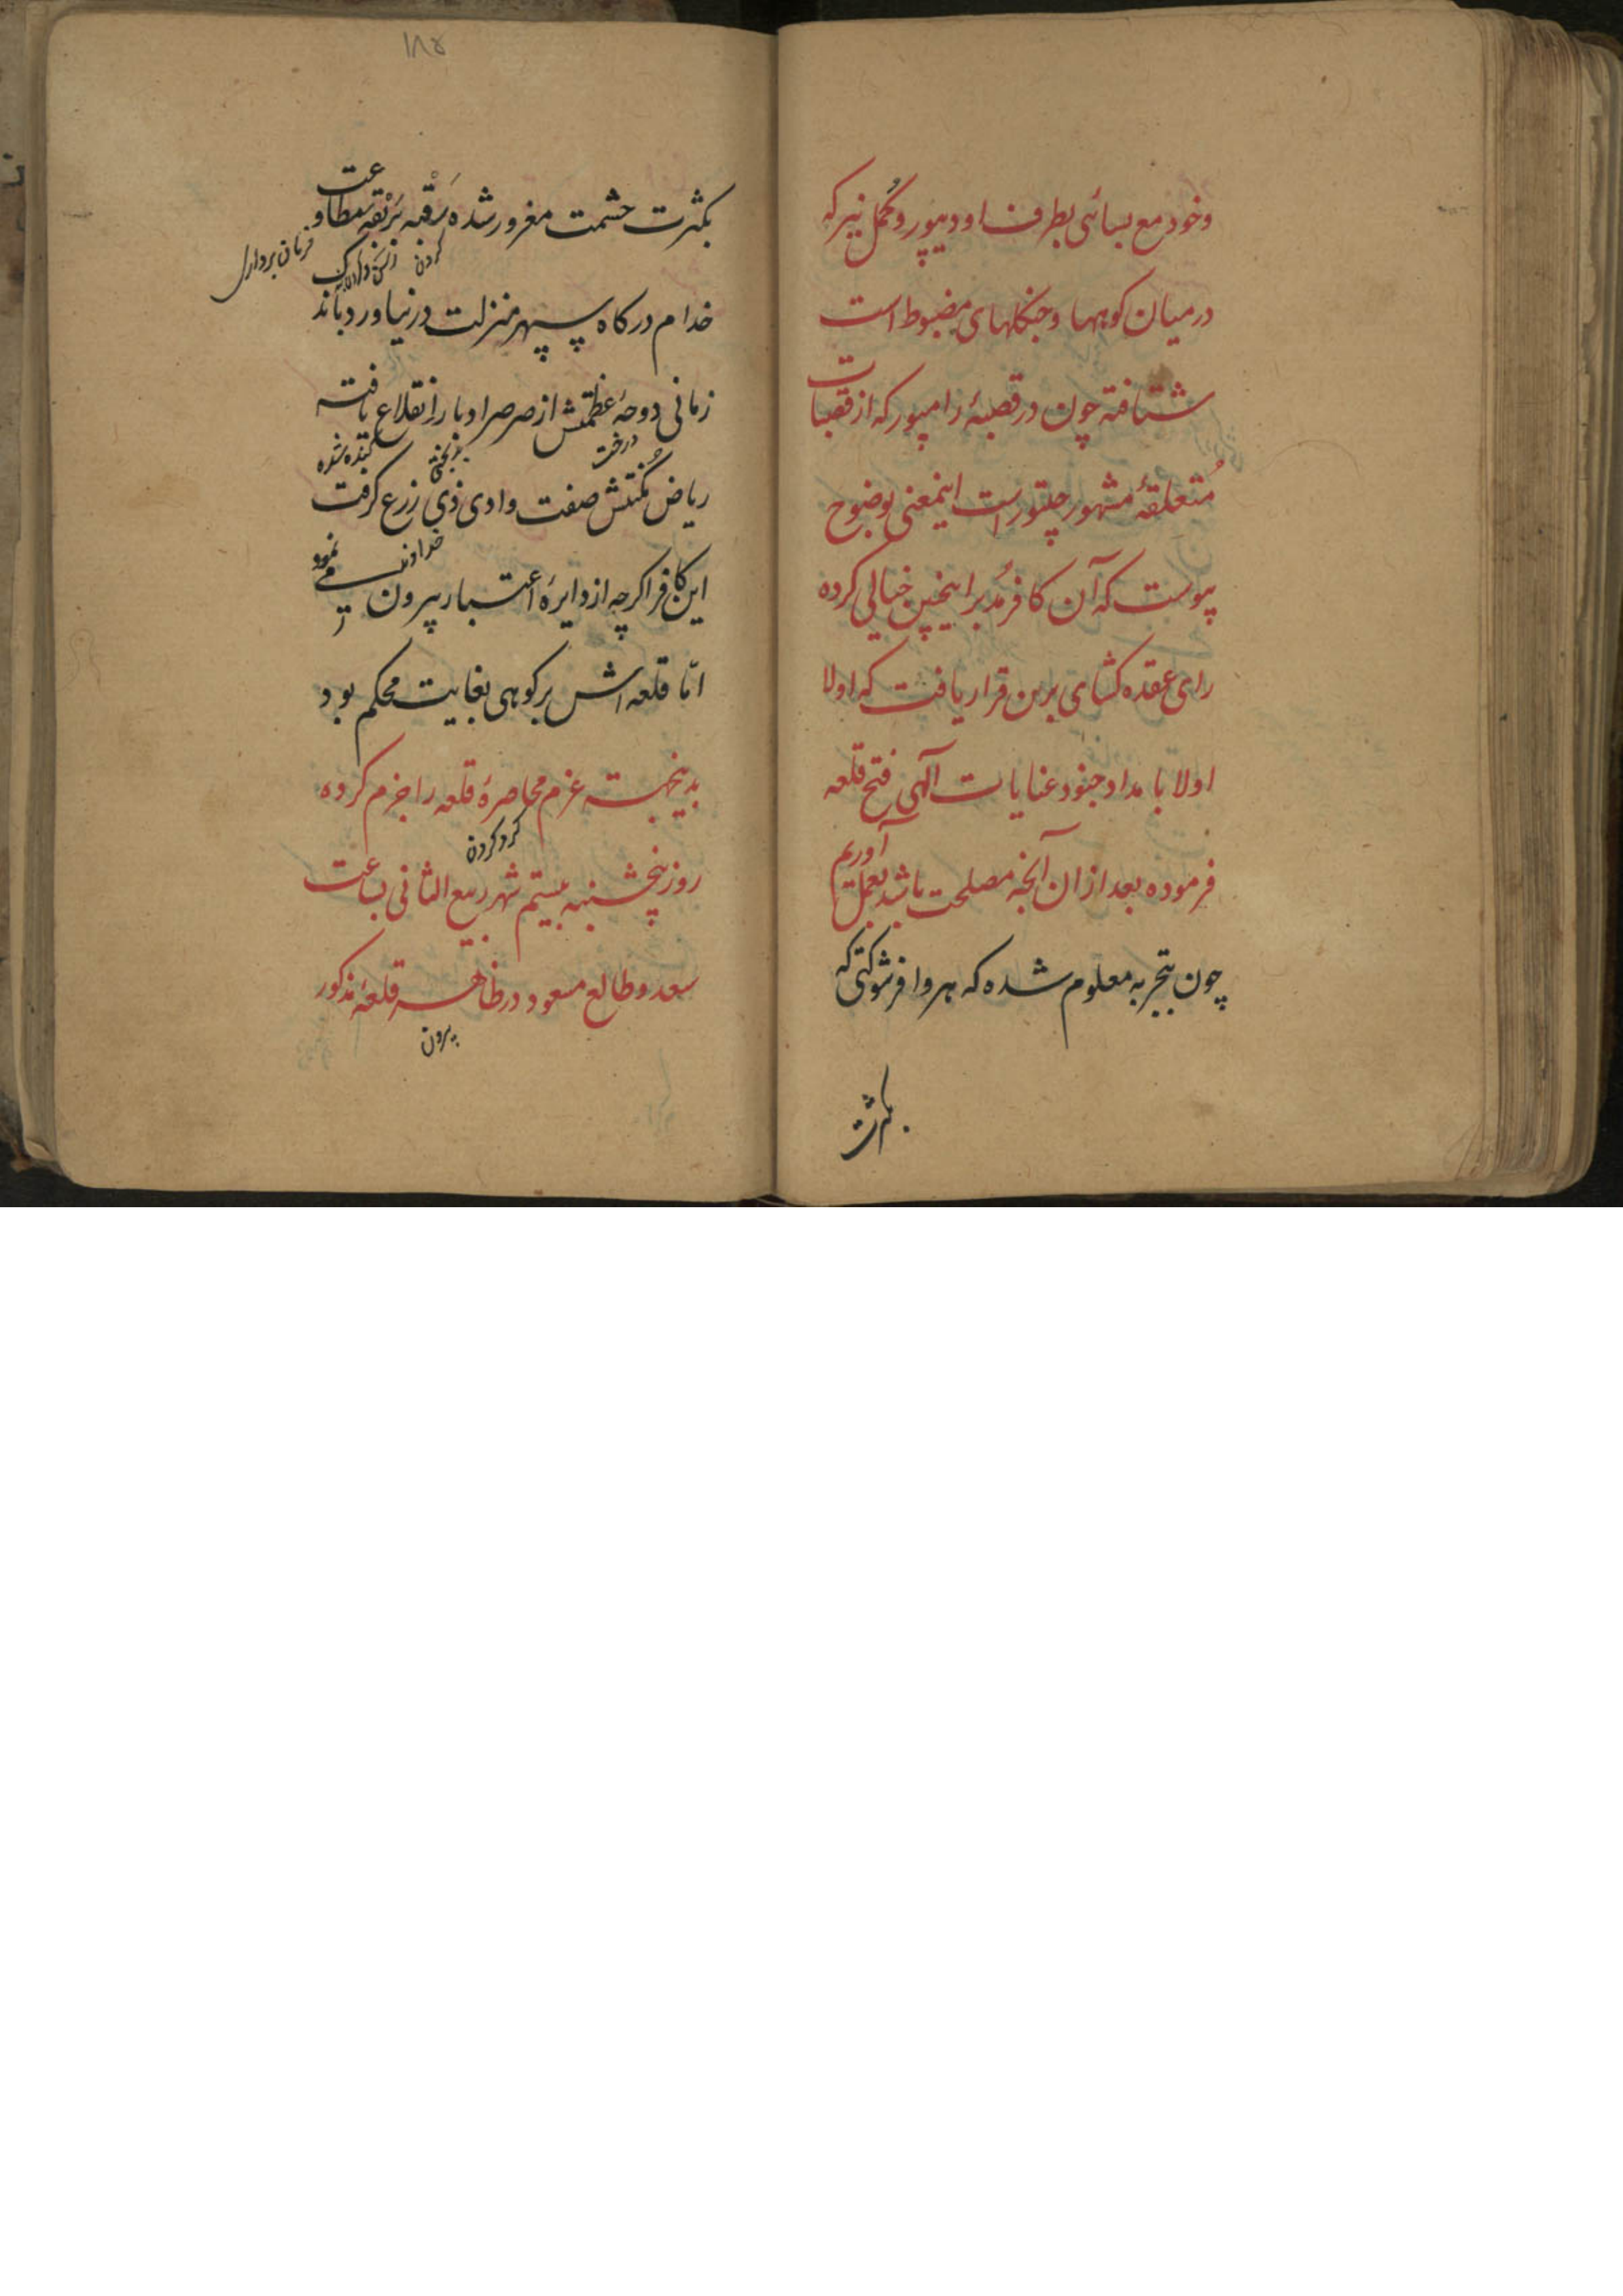 وخود مع سبائی بطرف اودیپور و کمل نیر که
درمیان کوهها و جنکلهای مضبوط است
شتافته چون در قصبهٔ رامپور که از قصبات
مُتعلقهٔ مشهور چتور است اینمعنی بوضوح
پیوست که آن کافر مُدبر اینچنین خیالی کرده
رای عقده کشای برین قرار یافت که اولا
اولا با مداد جنود عنایات آلهی فتح قلعه
فرموده بعد ازان آنچه مصلحت باشد بعمل آوریم
چون بتجربه معلوم شده که هر وافر شوکتی که
بکثرت
۱۸۵
بکثرت حشمت مغرور شده رَقْبه بَرْبقهٔ مطاوعت
کردن
فرمان برداری
خدام درکاه سپهر منزلت در نیاورد باندک
زمانی دوحهٔ عظمتش از صرصر ادبار انقلاع یافته
درخت
بدبختی
کنده شده
ریاض مُکنتش صفت وادی ذی زرع کرفت
خداوند
این کافر اکرچه از دایرهٔ اعتبار بیرون می نمود
امّا قلعه اش بر کوهی بغایت محکم بود
بدینجهته عزم محاصرهٔ قلعه را جزم کرده
کرد کردن
روز پنجشنبه بیستم شهر ربیع الثانی بساعت
سعد و طالع مسعود در ظاهر قلعهٔ مذکور
بیرون